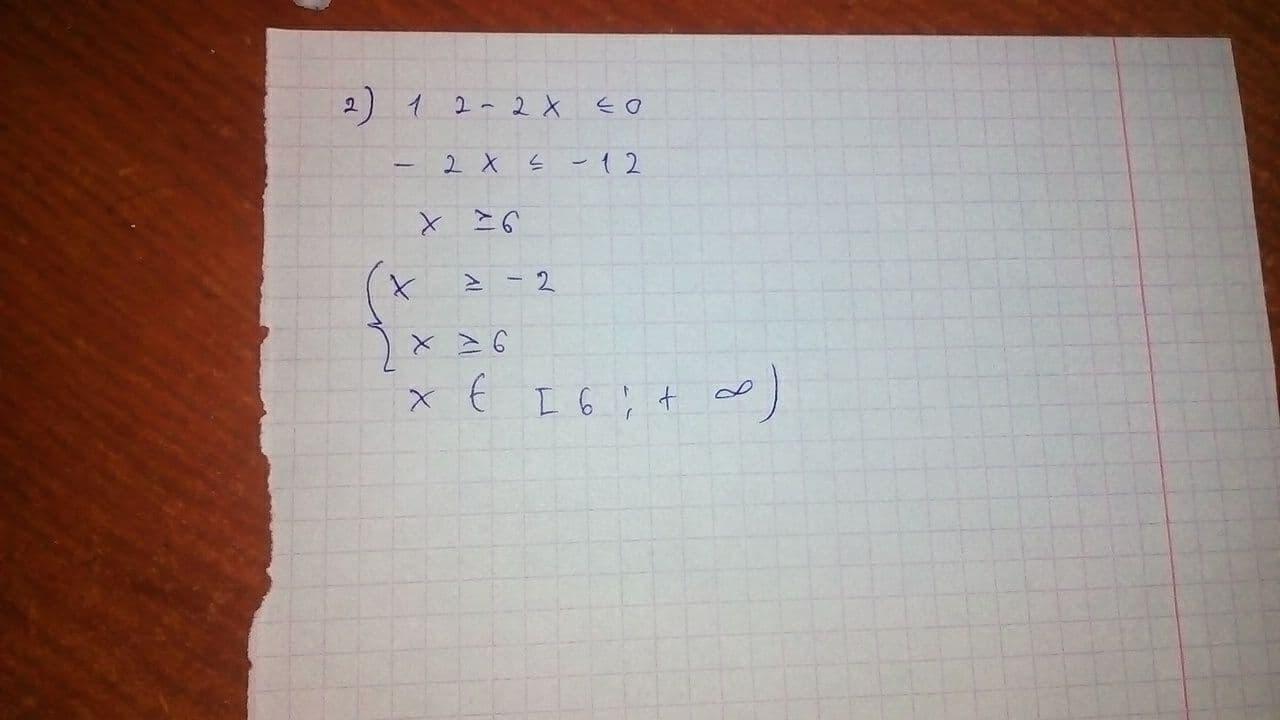 2) 12-2x ≤0
-2x ≤ -12
x ≥6
{x ≥ -2
x ≥6
x ∈ [6;+∞)